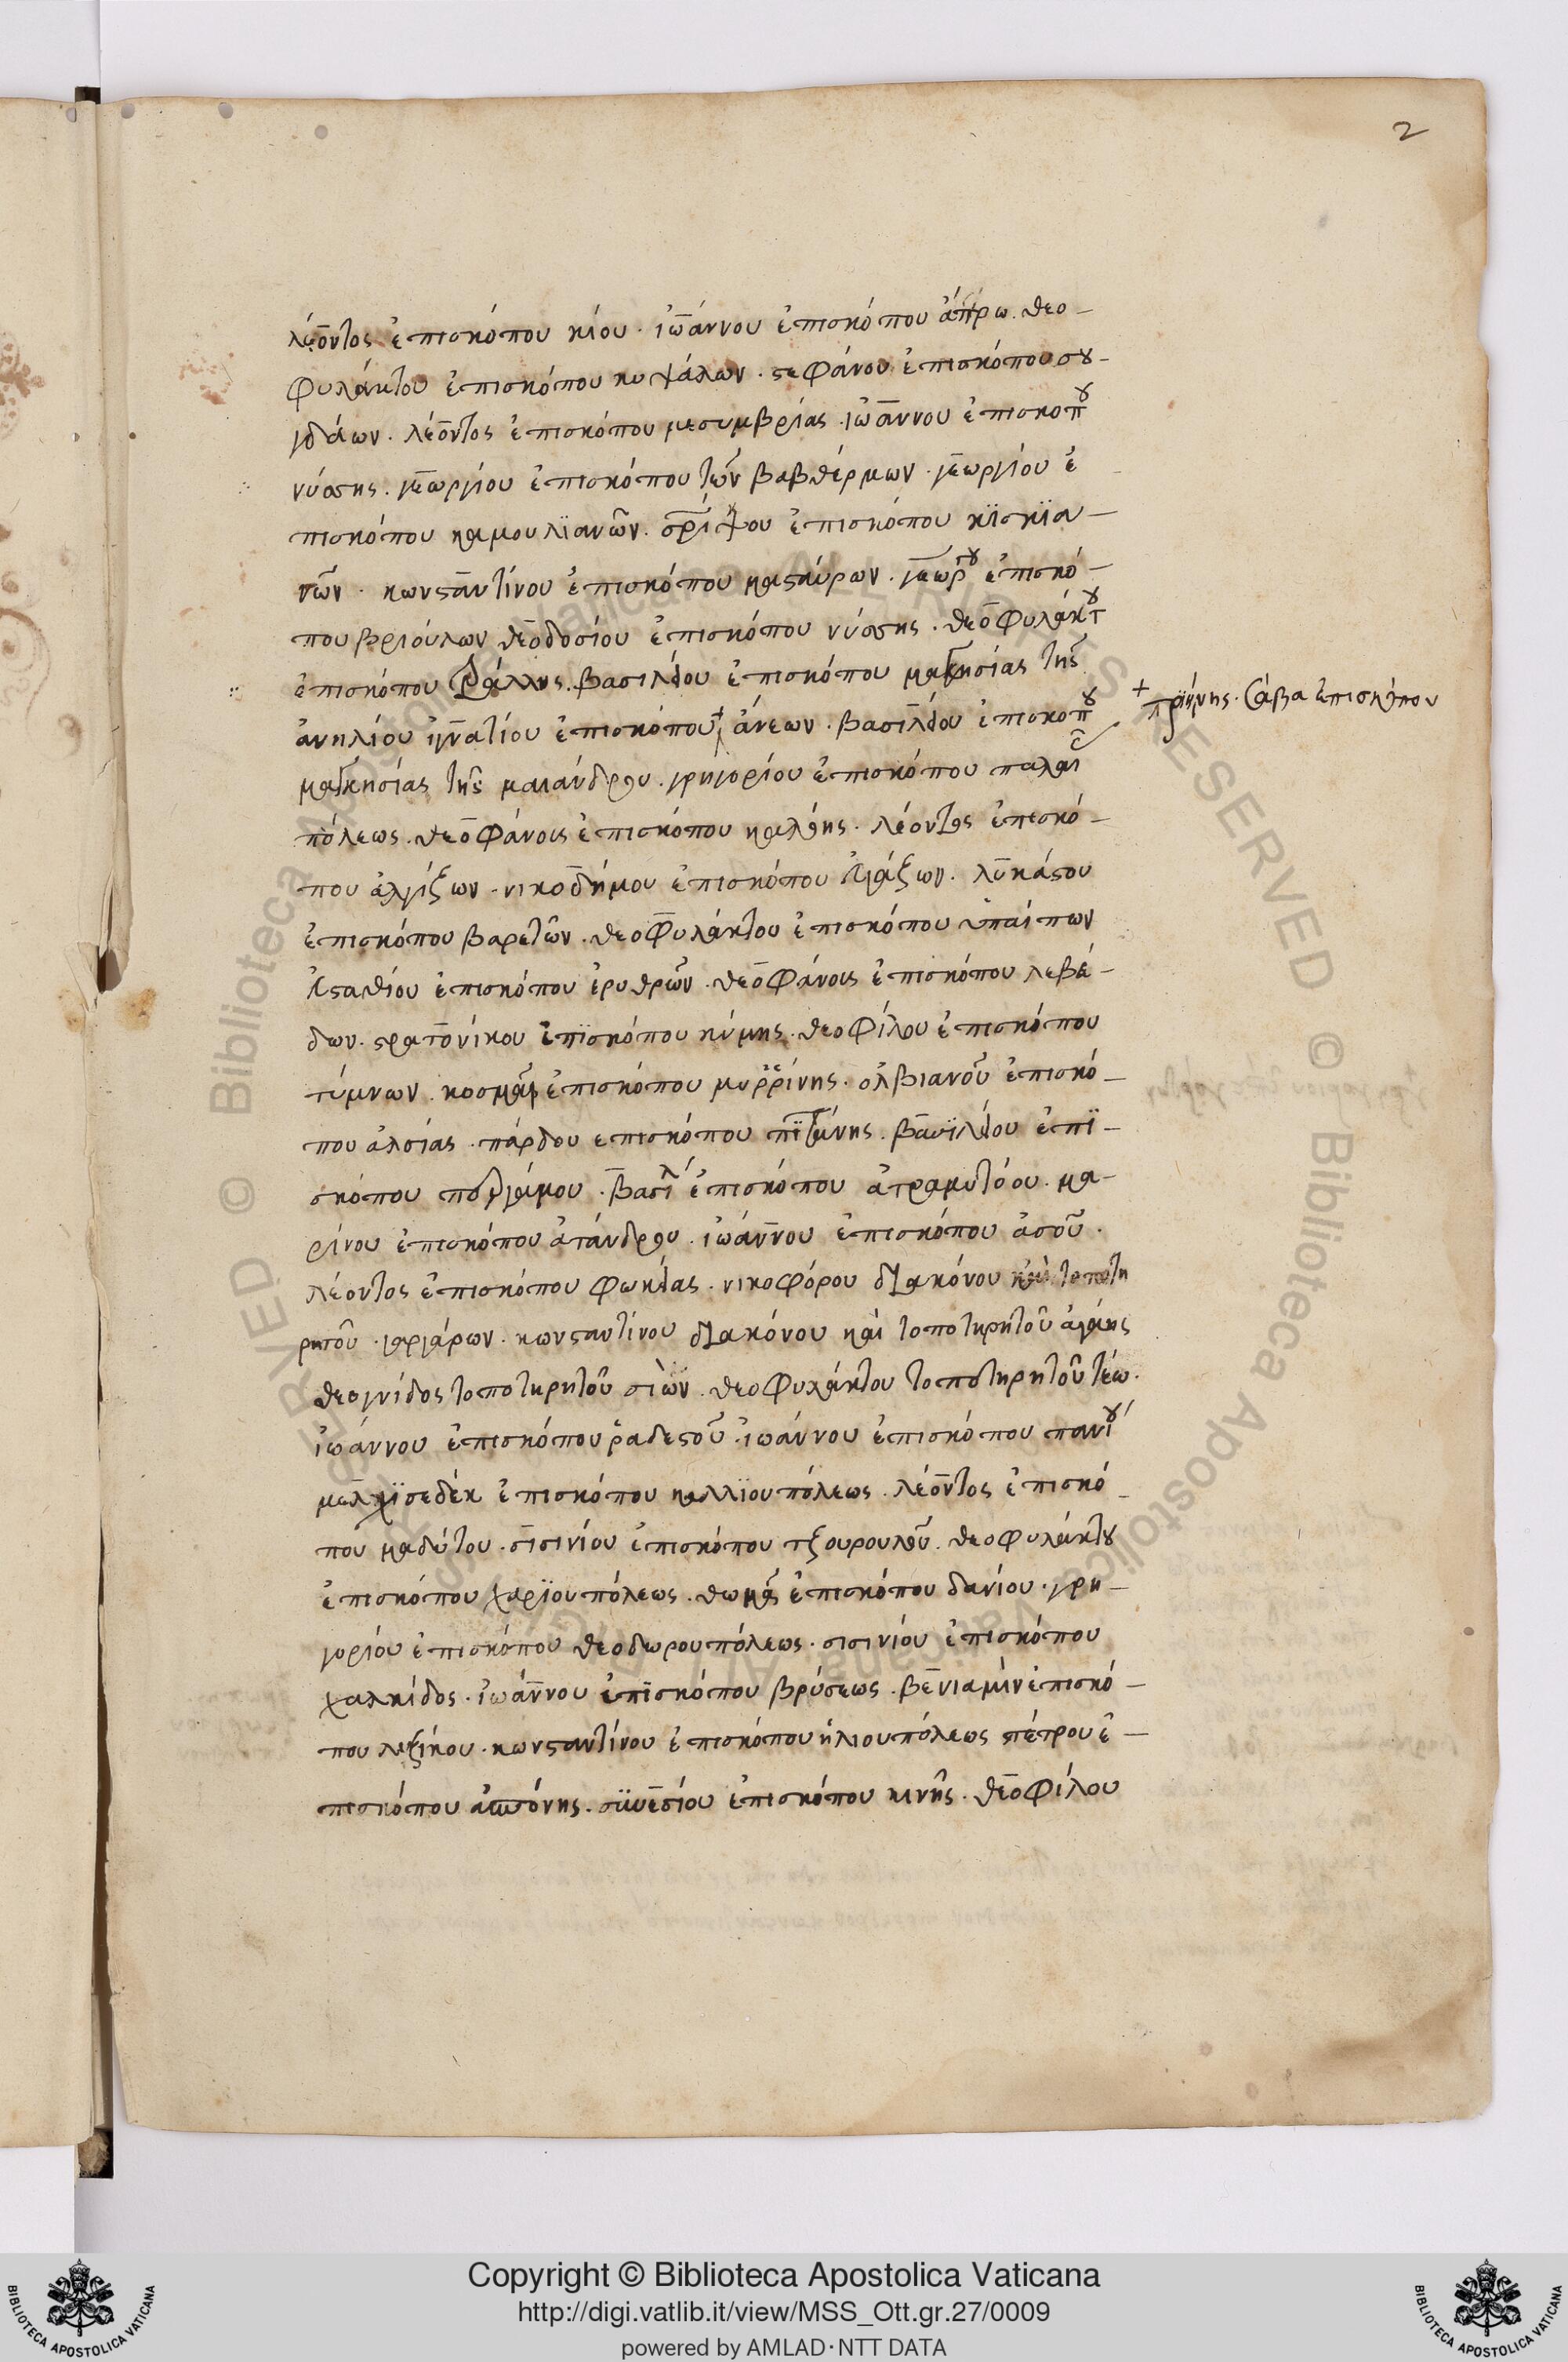 2
λέοντος ἐπισκόπου κίου · ἰωάννου ἐπισκόπου ἄπρω · θεο-
φυλάκτου ἐπισκόπου κυψάλων · στεφάνου ἐπισκόπου σου-
γδάων · λέοντος ἐπισκόπου μεσυμβρίας · ἰωάννου ἐπισκόπου
νύσσης · γεωργίου ἐπισκόπου τῶν βαβθέρμων · γεωργίου ἐ
πισκόπου καμουλϊανῶν · ἐπισκόπου κϊσκϊσ-
σῶν · κωνσταντίνου ἐπισκόπου καισταύρων · γεωρ ἐπισκό-
που βριούλων θεοδοσίου ἐπισκόπου νύσσης · θεοφυλάκτου
ἐπισκόπου βασιλείου ἐπισκόπου μαγνησίας τῆς
ἀνηλίου ἰγνατίου ἐπισκόπου + ἄνεων · βασιλείου ἐπισκόπου
+ πριήνης · σάβα ἐπισκόπου
μαγνησίας τῆς μαιάνδρου · γρηγορίου ἐπισκόπου παλαι
πόλεως · θεοφάνους ἐπισκόπου καλόης · λέοντος ἐπεσκό-
που ἀλγίζων · νικοδήμου ἐπισκόπου εὐάζων · λυκάστου
ἐπισκόπου βαρετῶν · θεοφυλάκτου ἐπισκόπου ὑπαίπων
εὐσταθίου ἐπισκόπου ἐρυθρῶν · θεοφάνους ἐπισκόπου λεβέ-
δων · στρατονίκου ἐπϊσκόπου κύμης · θεοφίλου ἐπισκόπου
τύμνων · κοσμᾶ ἐπισκόπου μυῤῥίνης · ὀλβιανοῦ ἐπισκό-
που ἐλσίας · πάρδου επισκόπου πϊτάνης · βασϊλείου ἐπϊ-
σκόπου περγάμου · βασιλ ἐπισκόπου ἀτραμυτόου · μα-
ρίνου ἐπισκόπου ἀτάνδρου · ἰωάννου ἐπισκόπου ἀσοῦ ·
λέοντος ἐπισκόπου φωκείας · νικοφόρου διακόνου καὶ τοποτη
ρητοῦ · γαργάρων · κωνσταντίνου διακόνου καὶ τοποτηρητοῦ ἀγάης
θεογνίδος τοποτηρητοῦ σιὼν · θεοφυλάκτου τοποτηρητοῦ τέω ·
ἰωάννου ἐπισκόπου ῥαδεστοῦ · ἰωάννου ἐπισκόπου πανίου
μελχϊσεδὲκ ἐπισκόπου καλλϊουπόλεως · λέοντος ἐπισκό-
που μαδύτου · σισινίου ἐπισκόπου τζουρουλοῦ · θεοφυλάκτου
ἐπισκόπου χαρϊουπόλεως · θωμᾶ ἐπισκόπου δανίου · γρη-
γορίου ἐπισκόπου θεοδωρουπόλεως · σισινίου ἐπισκόπου
χαλκίδος · ἰωάννου ἐπϊσκόπου βρύσεως · βενιαμὶν ἐπισκό-
που λιζίκου · κωνσταντίνου ἐπισκόπου ἡλιουπόλεως πέτρου ἐ-
πισκόπου · συνεσίου ἐπισκόπου κινῆς · θεοφίλου
Copyright © Biblioteca Apostolica Vaticana
http://digi.vatlib.it/view/MSS_Ott.gr.27/0009
powered by AMLAD·NTT DATA